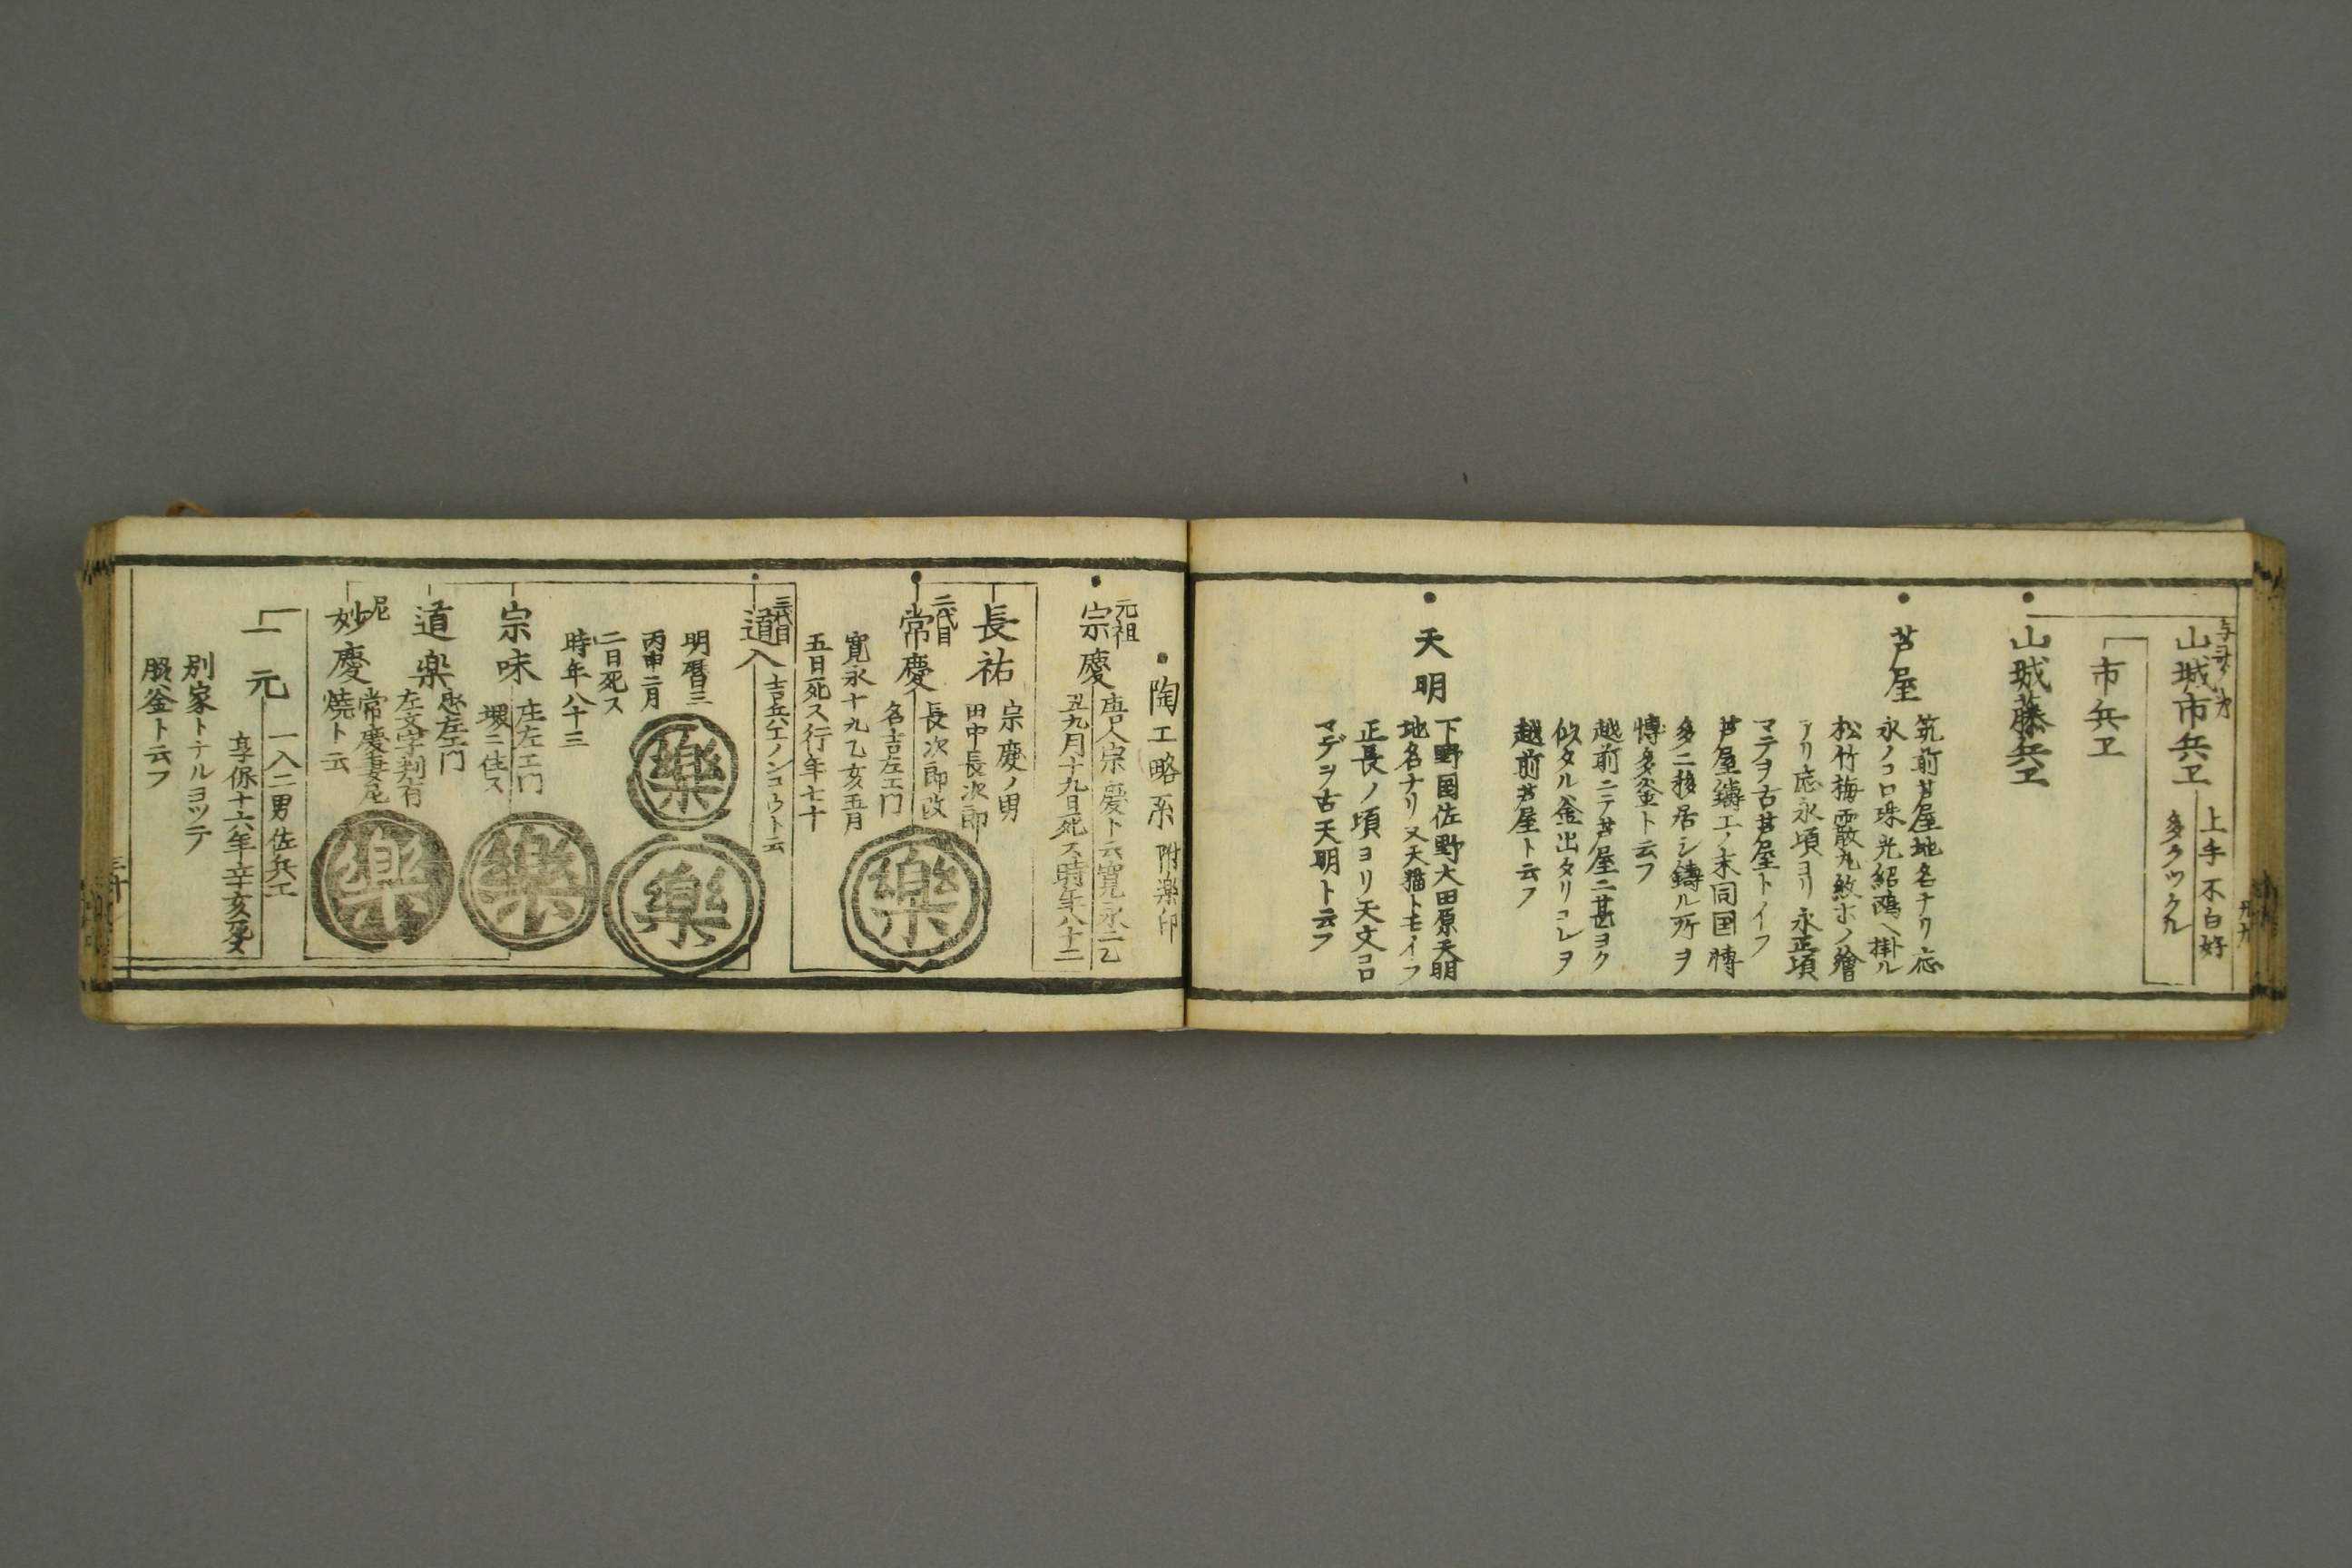 山城市兵ヱ
上手不白好
多クツクル
市兵ヱ
山城藤兵ヱ
芦屋
筑前芦屋地名ナリ応
永ノコロ珠光紹鴎ヘ掛ル
松竹梅霰丸紋ホノ繪
アリ応永頃ヨリ永正頃
マテヲ古芦屋トイフ
芦屋鑄工ノ末同国博
多ニ移居シ鑄ル所ヲ
博多釜ト云フ
越前ニテ芦屋ニ甚ヨク
似タル釜出タリコレヲ
越前芦屋ト云フ
天明
下野国佐野大田原天明
地名ナリ又天猫トモイフ
正長ノ頃ヨリ天文コロ
マデヲ古天明ト云フ
陶工略系 附楽印
元祖
宗慶
唐人宗慶ト云寛永二乙
丑九月十九日死ス時年八十二
長祐
宗慶ノ男
田中長次郎
二代目
常慶
長次郎改
名吉左エ門
寛永十九乙亥五月
五日死ス行年七十
三代目
道入
吉兵ヱノンコウト云
明暦三
丙申二月
二日死ス
時年八十三
樂
樂
樂
宗味
庄左エ門
堺ニ住ス
樂
道樂
忠左エ門
左文字判有
樂
尼
妙慶
常慶妻尼
焼ト云
一元
一入二男佐兵エ
享保十六年辛亥死ス
別家トナルヨツテ
脇釜ト云フ
三十